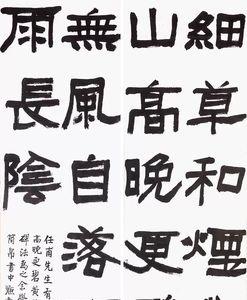 細草和煙
山高晚更
無風自落
雨長陰
任甫先生有
高晚更碧黃
碑法為之余
簡帛書中